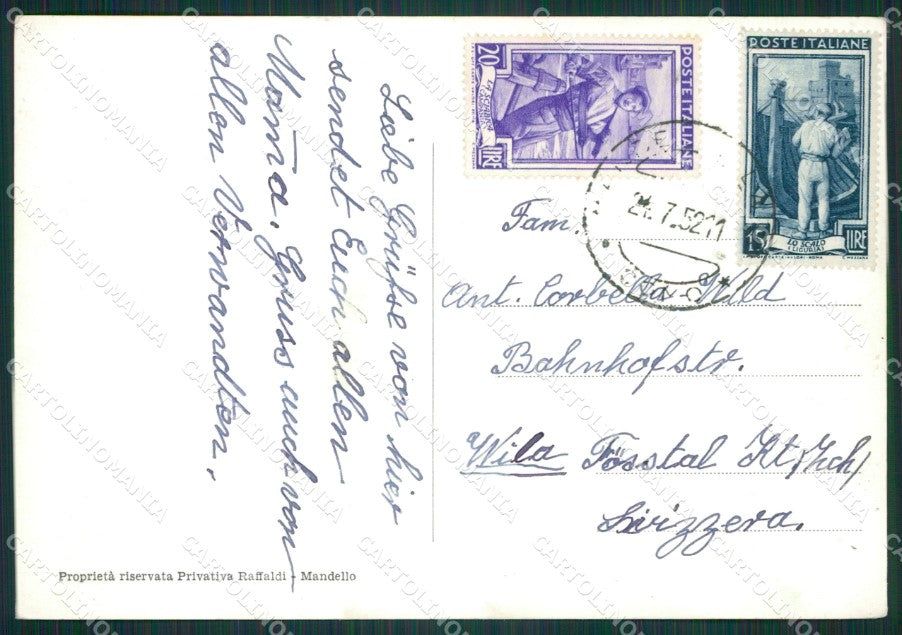 Liebe Grüße von hier
sendet Euch allen
Mama. Gruss auch von
allen Verwandten.
20
LIRE
POSTE ITALIANE
POSTE ITALIANE
15
LO SCALO
(LIGURIA)
LIRE
21.7.52 11
Fam.
Ant. Corbella Wild
Bahnhofstr.
Wila Tösstal Kt. Zch/
Svizzera.
Proprietà riservata Privativa Raffaldi - Mandello
CARTOLINOMANIA